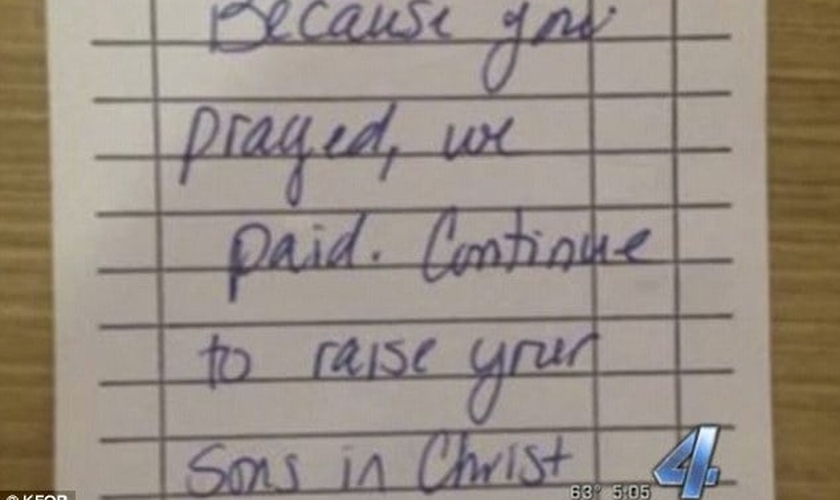 Because you
prayed, we
paid. Continue
to raise your
Sons in Christ
4
63° 5:05
© KFOR